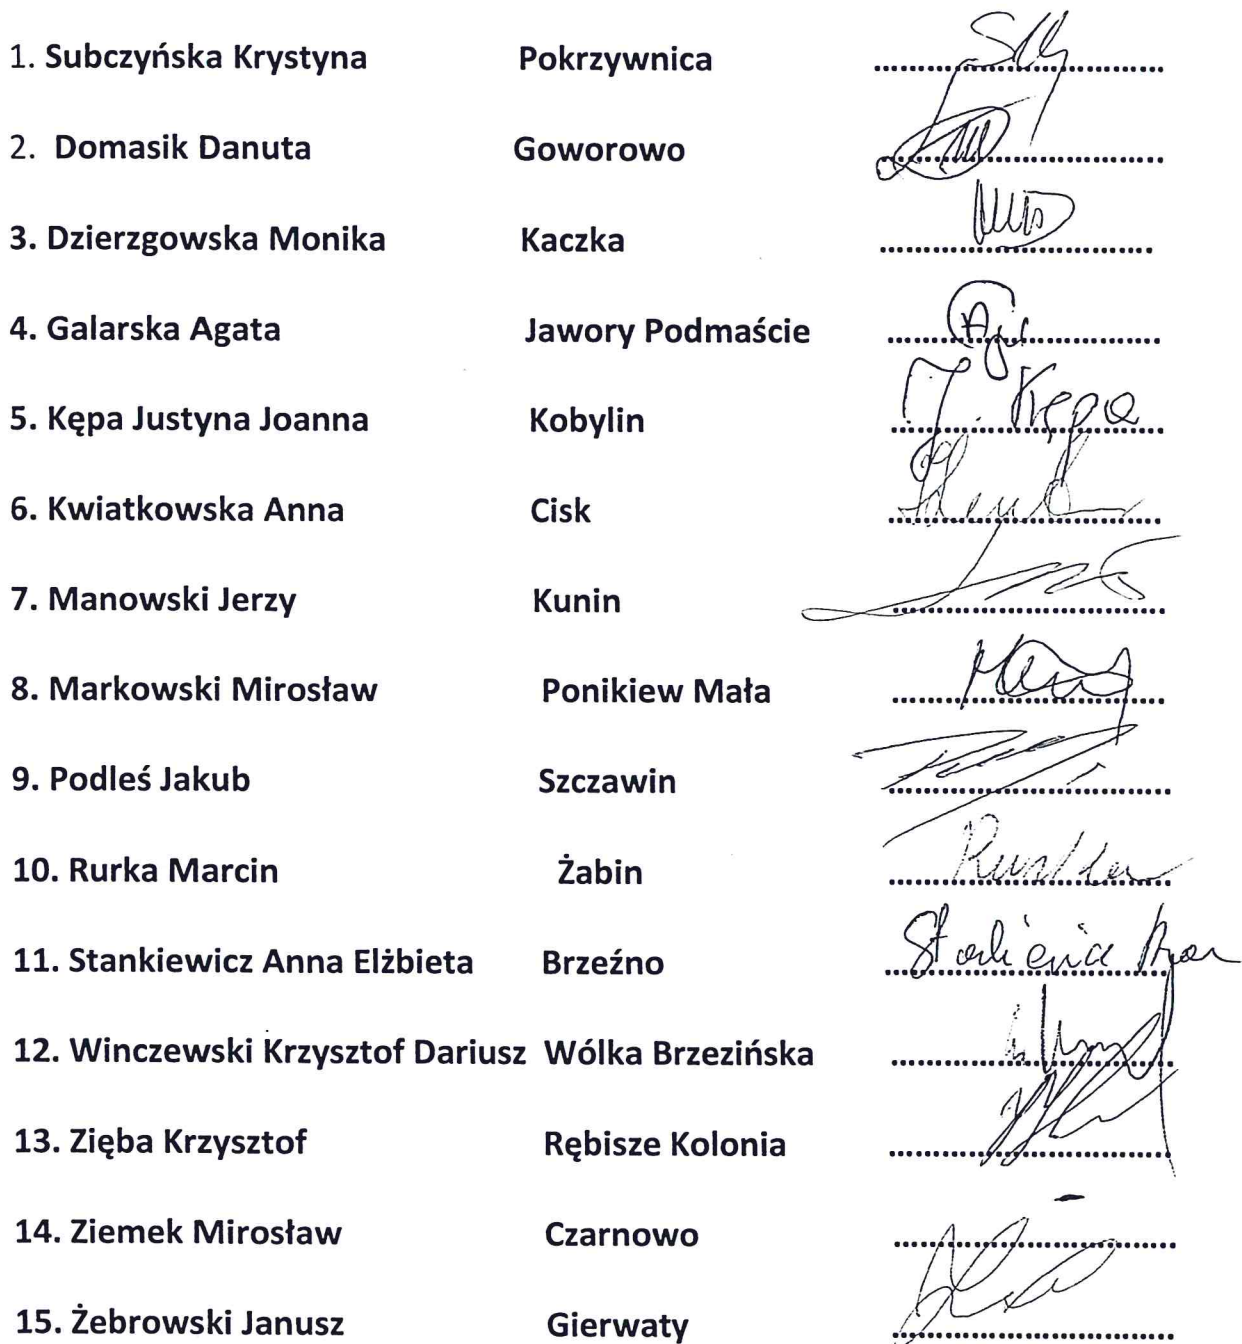 1. Subczyńska Krystyna Pokrzywnica
2. Domasik Danuta Goworowo
3. Dzierzgowska Monika Kaczka
4. Galarska Agata Jawory Podmaście
5. Kępa Justyna Joanna Kobylin J. Kępa
6. Kwiatkowska Anna Cisk
7. Manowski Jerzy Kunin
8. Markowski Mirosław Ponikiew Mała
9. Podleś Jakub Szczawin
10. Rurka Marcin Żabin
11. Stankiewicz Anna Elżbieta Brzeźno
12. Winczewski Krzysztof Dariusz Wólka Brzezińska
13. Zięba Krzysztof Rębisze Kolonia
14. Ziemek Mirosław Czarnowo
15. Żebrowski Janusz Gierwaty